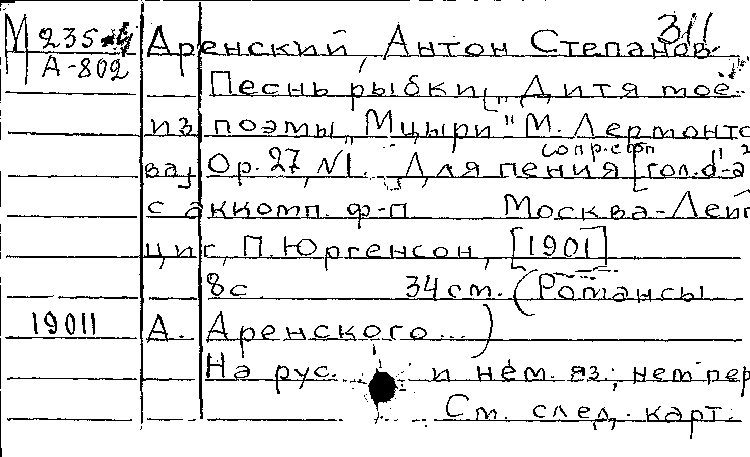 311
М 235-4 Аренский, Антон Степанов-
А-802
Песнь рыбки „Дитя моё"
из поэмы „Мцыри" М. Лермонто
сопр.
ва, Op. 27, N1. Для пения [гол. d¹-a²
с аккомп. ф-п Москва-Лейп
циг, П. Юргенсон, [1901]
8с. 34 см. (Романсы
19011 А. Аренского...)
На рус. и нем. яз.; нем пер
См. след. карт.